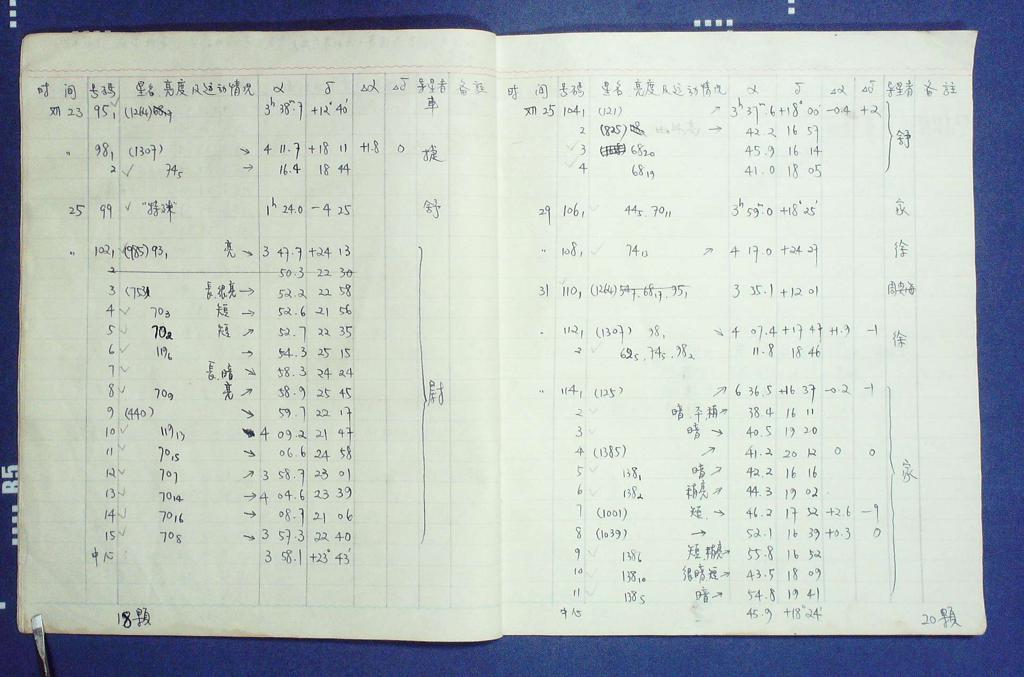 时 间 号码 星名 亮度及运动情况 α δ Δα Δδ 寻星者 备註
23 95₁ (1264) 3ʰ 38ᵐ.7 +12° 40′ 車
" 98₁ (1307) → 4 11.7 +18 11 +1.8 0 捷
2 ✓ 74₅ → 16.4 18 44
25 99 ✓ "特殊" 1ʰ 24.0 -4 25 舒
" 102₁ (985) 93₁ 亮 ↘ 3 47.7 +24 13
2 50.3 22 30
3 (753) 長很亮 → 52.2 22 58
4 ✓ 70₃ 短 → 52.6 21 56
5 ✓ 70₂ 短 ↘ 52.7 22 35
6 ✓ 119₆ → 54.3 25 15
7 ✓ 長.暗 58.3 24 24
8 ✓ 70₉ 亮 ↗ 58.9 25 45 尉
9 (440) ↘ 59.7 22 17
10 119₁₃ 4 09.2 21 47
11 ✓ 70₁₅ → 06.6 24 58
12 ✓ 70₇ ↗ 3 58.7 23 01
13 ✓ 70₁₄ → 4 04.6 23 39
14 ✓ 70₁₆ → 08.7 21 06
15 ✓ 70₈ ↘ 3 57.3 22 40
中心 3 58.1 +23° 43′
18顆
时 间 号码 星名 亮度及运动情况 α δ Δα Δδ 寻星者 备註
25 104₁ (121) 3ʰ 37ᵐ.6 +18° 00′ -0.4 +2
2 (825) → 42.2 16 57 舒
✓ 3 68₂₀ 45.9 16 14
✓ 4 68₁₉ 41.0 18 05
29 106₁ ✓ 44₅.70₁₁ 3ʰ 59ᵐ.0 +18° 25′ 家
" 108₁ ✓ 74₁₃ ↗ 4 17.0 +24 27 徐
31 110₁ (1264) 3 35.1 +12 01
" 112₁ (1307) 98₁ ↘ 4 07.4 +17 47 +1.9 -1 徐
2 ✓ 74₅.98₂ 11.8 18 46
" 114₁ (125) ↗ 6 36.5 +16 37 -0.2 -1
2 ✓ 暗 → 38.4 16 11
3 ✓ 暗 ↘ 40.5 19 20
4 (1385) ↗ 41.2 20 12 0 0
5 ✓ 138₁ 暗 → 42.2 16 16 家
6 ✓ 138₂ 稍亮 ↗ 44.3 19 02
7 (1001) 短 → 46.2 17 52 +2.6 -9
8 (1039) → 52.1 16 39 +0.3 0
9 ✓ 138₆ 短.稍亮 → 55.8 16 52
10 ✓ 138₁₀ 很暗短 → 43.5 18 09
11 ✓ 138₅ 暗 → 54.8 19 41
中心 45.9 +18° 24′
20顆
B5